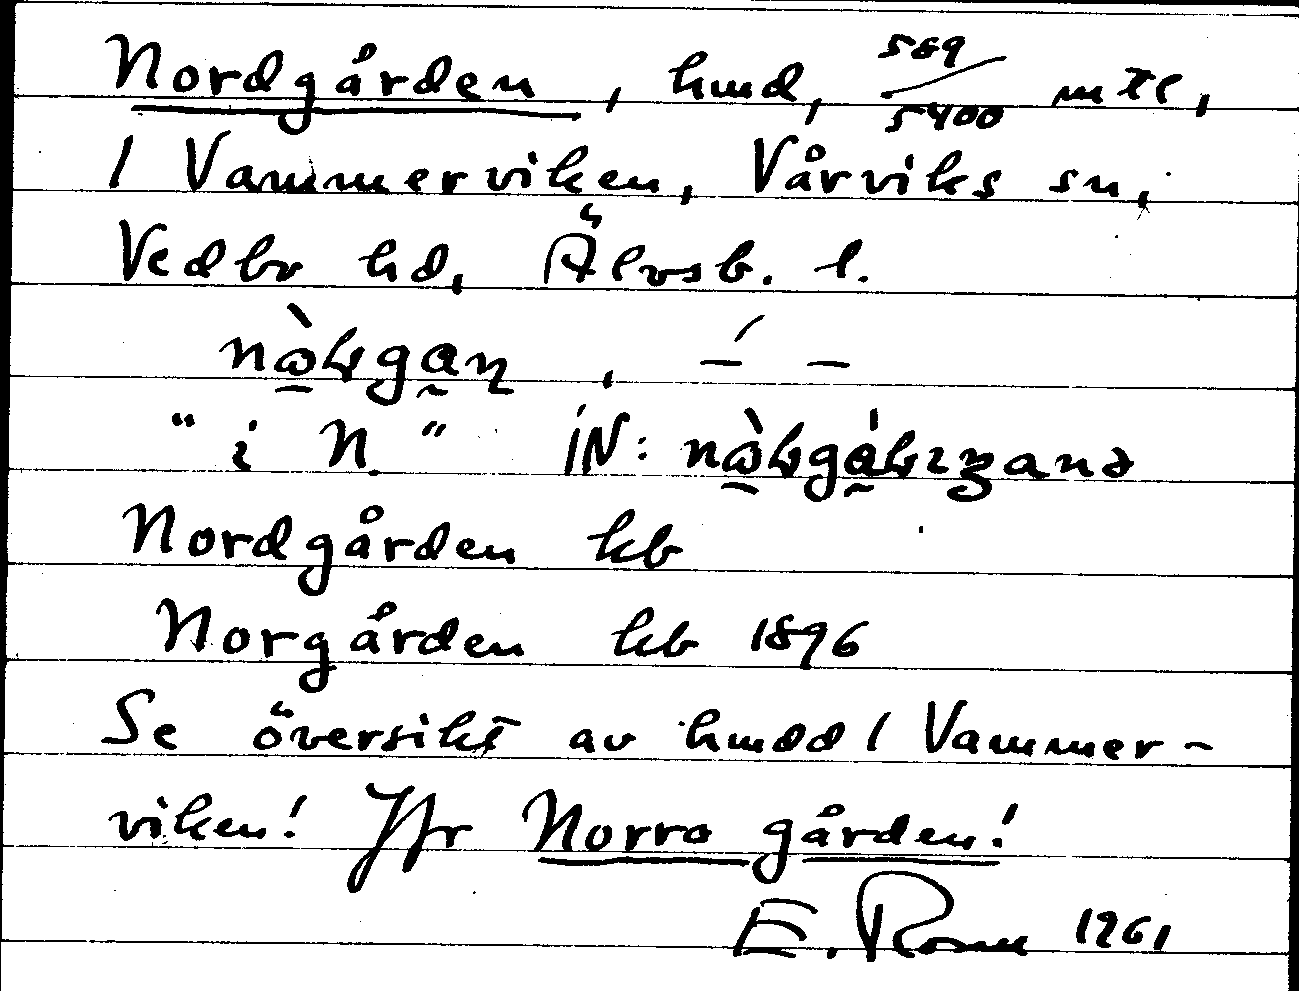 Nordgården, hmd, 589/5400 mtl,
i Vammerviken, Vårviks sn,
Vedbo hd, Älvsb. l.
" i N. " IN:
Nordgården kb
Norgården kb 1896
Se översikt av hmdd i Vammer-
viken! Jfr Norra gården!
E. 1961